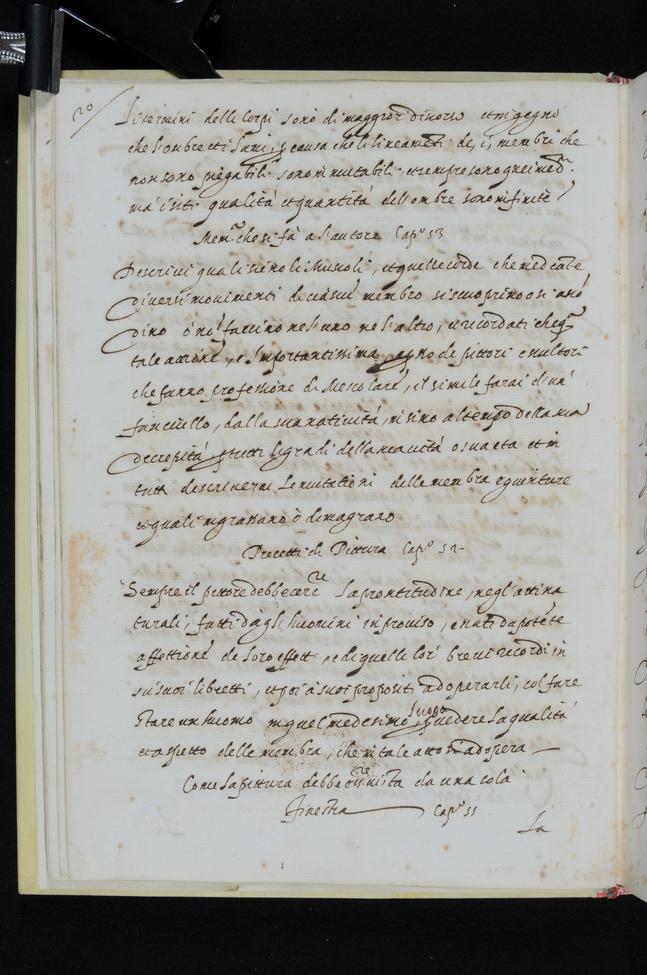 20
I termini delli Corpi sono di maggior discorso et ingegno
che l'ombre et i lumi, p causa che li lineamenti de, i, membri che
non sono piegabili sono inmutabili et sempre sono quei med.mi
ma i siti qualità et quantità dell'ombre sono infinite
Mem.a che si fà a l'autore Cap.o 53
Descrivi quali siano li Muscoli, et quelle corde che mediante
diversi movimenti di ciascun membro si scuoprino o si ascon
dino ò non faccino ne l'uno ne l'altro, et ricordati che q.ta
tale attione, e Importantissima, apresso de pittori e scultori
che fanno professione di Mescolare, e il simile farai d'un
fanciullo, dalla sua natività, in sino al tempo della sua
Decrepità p tutti li gradi della sua età et in
tutti descriverai le mutationi delle membra e giunture
et quali ingrassano ò dimagrano
Precetti di Pittura Cap.o 54
Sempre il pittore debbe cercare la prontitudine, negl'atti na
turali, fatti dà gli huomini inproviso, e nati da potente
affettione de loro effetti, e di quelli far brevi ricordi in
su suoi libretti, et poi à suoi propositi adoperarli, col fare
stare un huomo in quel medesimo luogo p vedere la qualità
et aspetto delle membra, che in tale atto s'adopera
Come la pittura debbe essere vista da una sola
finestra Cap.o 55
La